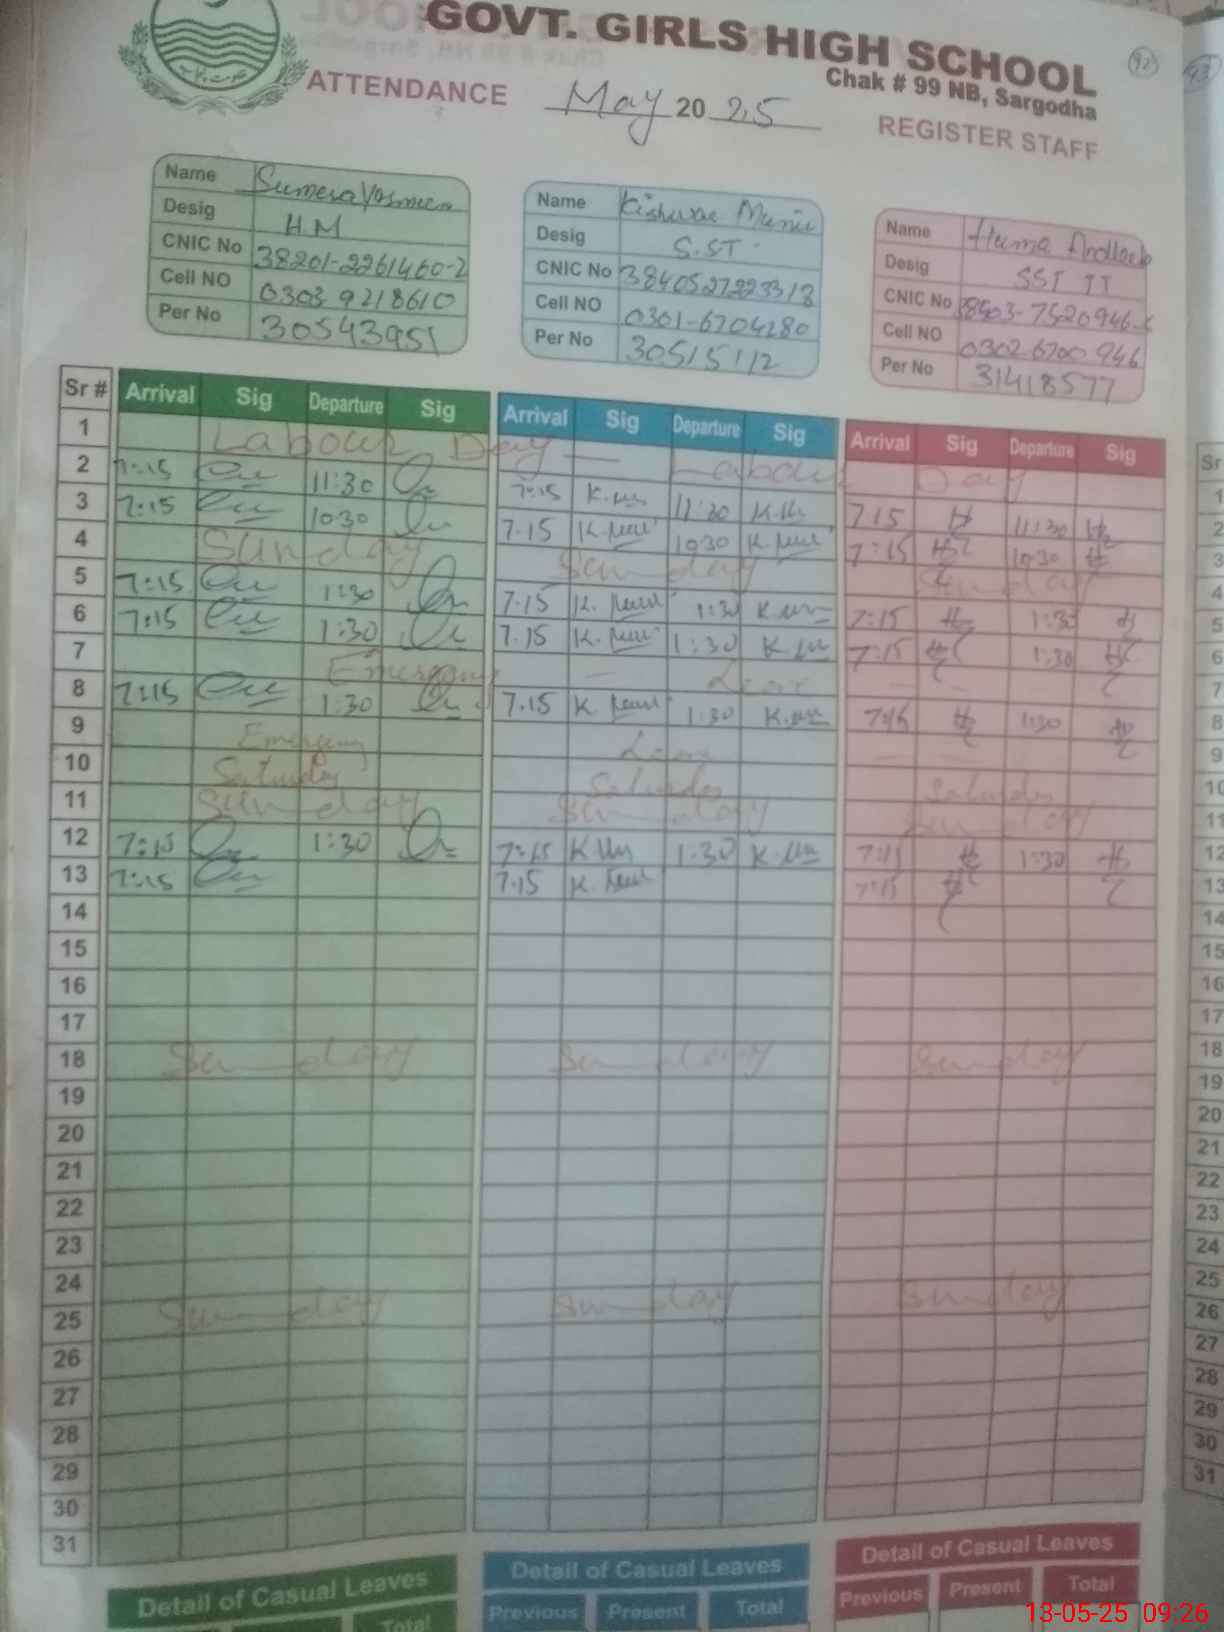 GOVT. GIRLS HIGH SCHOOL
Chak # 99 NB, Sargodha
92
93
ATTENDANCE May 20 25
REGISTER STAFF
Name Sumera Yasmeen
Desig H M
CNIC No 38201-2261460-2
Cell NO 0303 9218610
Per No 30543951
Name Kishwar Munir
Desig S.ST
CNIC No 3840527223318
Cell NO 0301-6704280
Per No 30515112
Name Huma Andleeb
Desig SST IT
CNIC No 38503-7520946-
Cell NO 0302 6700 946
Per No 31418577
Sr # Arrival Sig Departure Sig Arrival Sig Departure Sig Arrival Sig Departure Sig
1 Labour Day — Labour Day
2 7:15 11:30 7:15 11:30 7 15 11:30
3 7:15 10:30 7.15 10:30 7:15 10:30
4 Sunday Sunday Sunday
5 7:15 1:30 7.15 1:30 7:15 1:30
6 7:15 1:30 7.15 1:30 7:15 1:30
7 Emergency — Leave
8 7:15 1:30 7.15 1:30 7:15 1:30
9 Emergency Leave
10 Saturday Saturday Saturday
11 Sunday Sunday Sunday
12 7:15 1:30 7:15 1:30 7:15 1:30
13 7:15 7.15 7:15
14
15
16
17
18 Sunday Sunday Sunday
19
20
21
22
23
24
25 Sunday Sunday Sunday
26
27
28
29
30
31
Detail of Casual Leaves Detail of Casual Leaves Detail of Casual Leaves
Total Previous Present Total Previous Present Total
13-05-25 09:26